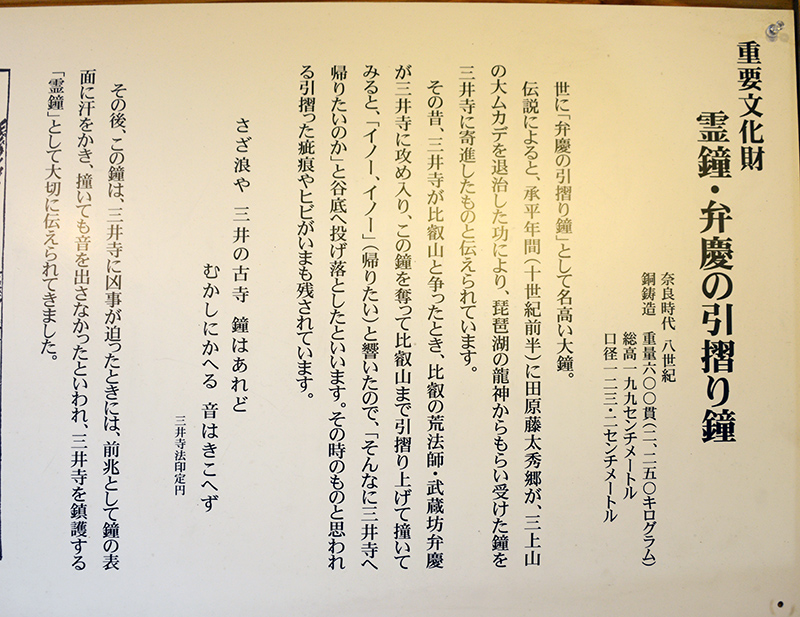 重要文化財
霊鐘・弁慶の引摺り鐘
奈良時代 八世紀
銅鋳造 重量六〇〇貫(二、二五〇キログラム)
総高一九九センチメートル
口径一二三・二センチメートル
世に「弁慶の引摺り鐘」として名高い大鐘。
伝説によると、承平年間(十世紀前半)に田原藤太秀郷が、三上山
の大ムカデを退治した功により、琵琶湖の龍神からもらい受けた鐘を
三井寺に寄進したものと伝えられています。
その昔、三井寺が比叡山と争ったとき、比叡の荒法師・武蔵坊弁慶
が三井寺に攻め入り、この鐘を奪って比叡山まで引摺り上げて撞いて
みると、「イノー、イノー」(帰りたい)と響いたので、「そんなに三井寺へ
帰りたいのか」と谷底へ投げ落としたといいます。その時のものと思われ
る引摺った疵痕やヒビがいまも残されています。
さざ浪や 三井の古寺 鐘はあれど
むかしにかへる 音はきこへず
三井寺法印定円
その後、この鐘は、三井寺に凶事が迫ったときには、前兆として鐘の表
面に汗をかき、撞いても音を出さなかったといわれ、三井寺を鎮護する
「霊鐘」として大切に伝えられてきました。